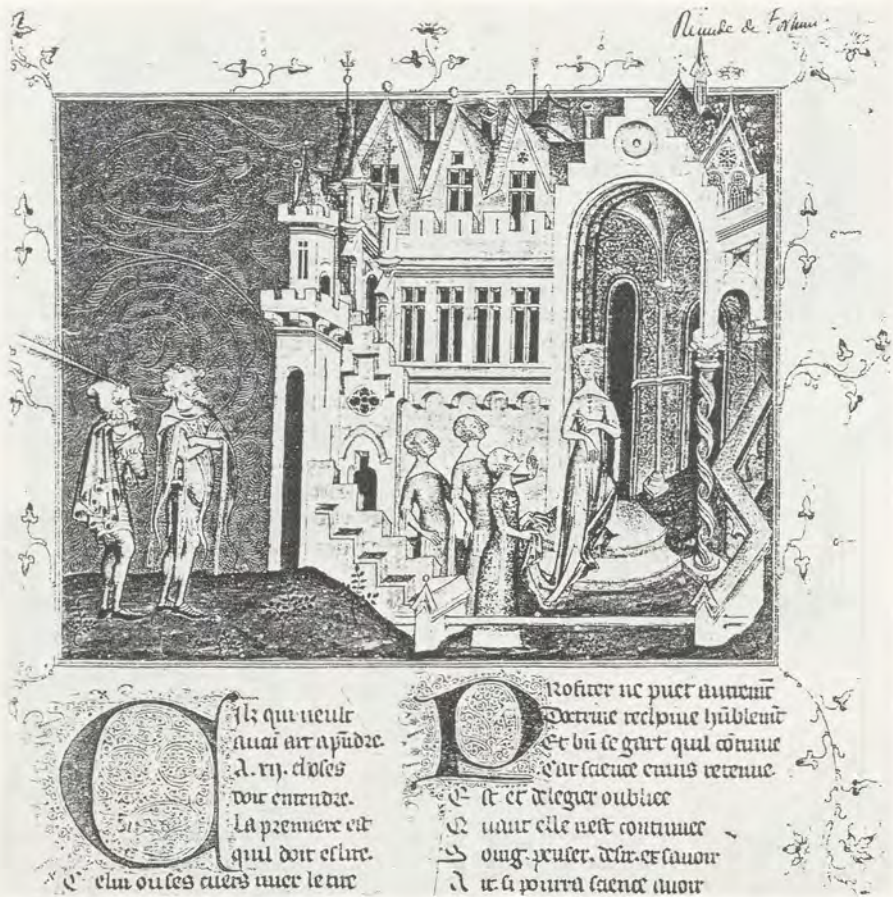 Remede de Fortune
Cilz qui ueult
aucũ art apñdre.
A .xij. choses
doit entendre.
La premiere est
quil doit eslire.
Celui ou ses cuers le tire
Profiter ne puet autremẽt
Doctrine recoiue hũblemẽt
Et biẽ se gart quil cõtinue
Car science enuis retenue.
Est et de legier oubliee
Quant elle nest continuee
Soing. penser. desir. et sauoir
Ait. si pourra science auoir